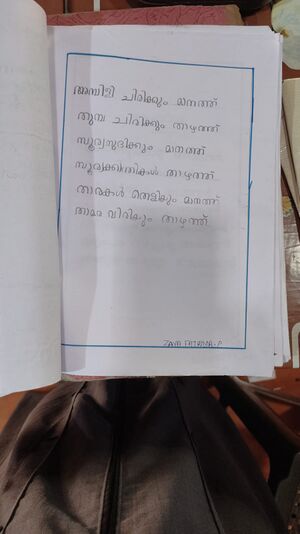 അമ്പിളി ചിരിക്കും മാനത്ത്
തുമ്പ ചിരിക്കും താഴത്ത്
സൂര്യനുദിക്കും മാനത്ത്
സൂര്യകാന്തികൾ താഴത്ത്
താരകൾ തെളിയും മാനത്ത്
താമര വിരിയും താഴത്ത്
ZAVA FATHIMA.P